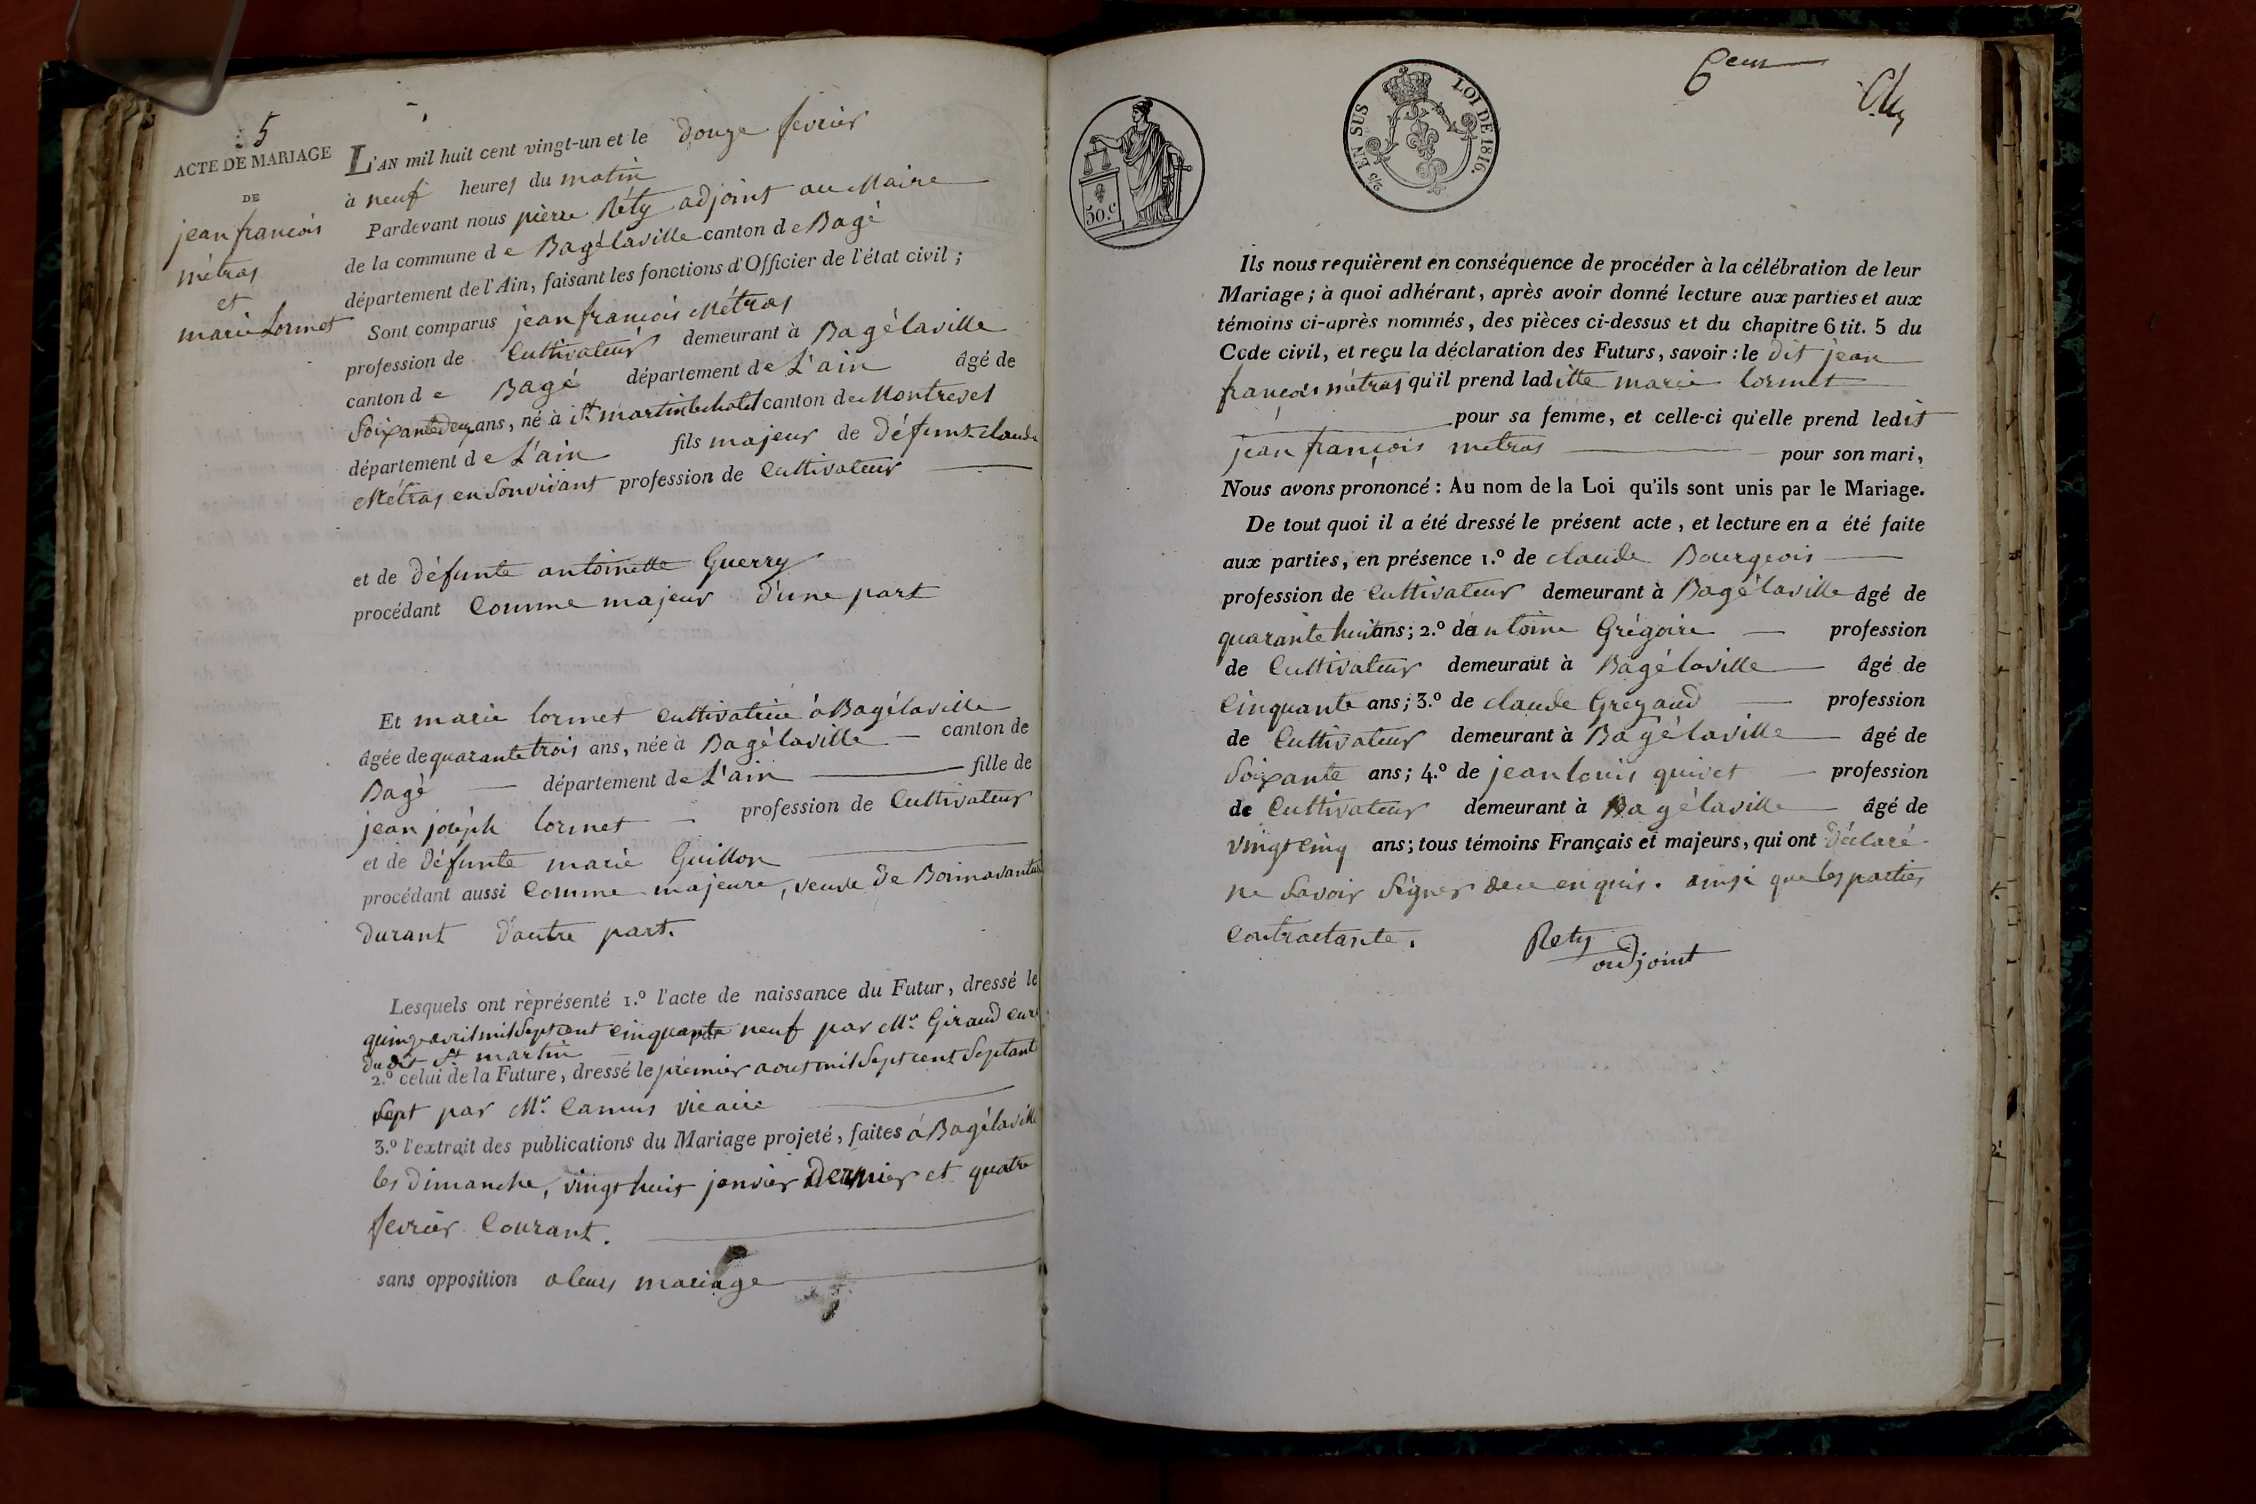 5
ACTE DE MARIAGE
DE
jean francois
métras
et
marie Lormet
L'AN mil huit cent vingt-un et le douze fevrier
à neuf heures du matin
Pardevant nous pierre Réty adjoint au Maire
de la commune de Bagélaville canton de Bagé
département de l'Ain, faisant les fonctions d'Officier de l'état civil ;
Sont comparus jean francois Métras
profession de Cultivateur demeurant à Bagélaville
canton de Bagé département de L'ain âgé de
Soixantedeux ans, né à St martinlechatel canton de Montrevel
département de L'ain fils majeur de défunt claude
Métras en Sonvivant profession de Cultivateur
et de défunte antoinette Guerry
procédant Comme majeur d'une part
Et marie lormet Cultivatrice à Bagélaville
âgée de quarante trois ans, née à Bagélaville canton de
Bagé département de L'ain fille de
jean joseph lormet profession de Cultivateur
et de défunte marie Guillon
procédant aussi Comme majeure, veuve de Bonnavanture
durant d'autre part.
Lesquels ont représenté 1.º l'acte de naissance du Futur, dressé le
quinze avril mil Sept cent Cinquante neuf par Mr. Giraud curé
du dit St martin par
2.º celui de la Future, dressé le premier aout mil Sept cent Septante
Sept par Mr. Camus vicaire
3.º l'extrait des publications du Mariage projeté, faites à Bagélaville
les dimanche, vingt huit janvier dernier et quatre
fevrier Courant.
sans opposition a leurs mariage
50.c
2/5 EN SUS LOI DE 1816.
Ils nous requièrent en conséquence de procéder à la célébration de leur
Mariage ; à quoi adhérant, après avoir donné lecture aux parties et aux
témoins ci-après nommés, des pièces ci-dessus et du chapitre 6 tit. 5 du
Code civil, et reçu la déclaration des Futurs, savoir : le dit jean
francois métras qu'il prend laditte marie lormet
pour sa femme, et celle-ci qu'elle prend ledit
jean françois metras pour son mari,
Nous avons prononcé : Au nom de la Loi qu'ils sont unis par le Mariage.
De tout quoi il a été dressé le présent acte, et lecture en a été faite
aux parties, en présence 1.º de claude Bourgeois
profession de Cultivateur demeurant à Bagélaville âgé de
quarante huit ans ; 2.º de antoine Grégoire profession
de Cultivateur demeurant à Bagélaville âgé de
Cinquante ans ; 3.º de claude Grégaud profession
de Cultivateur demeurant à Bagélaville âgé de
Soixante ans ; 4.º de jean louis quivet profession
de Cultivateur demeurant à Bagélaville âgé de
vingt Cinq ans ; tous témoins Français et majeurs, qui ont déclaré
ne Savoir Signer de ce enquis. ainsi que les parties
Contractante.
Rety
adjoint